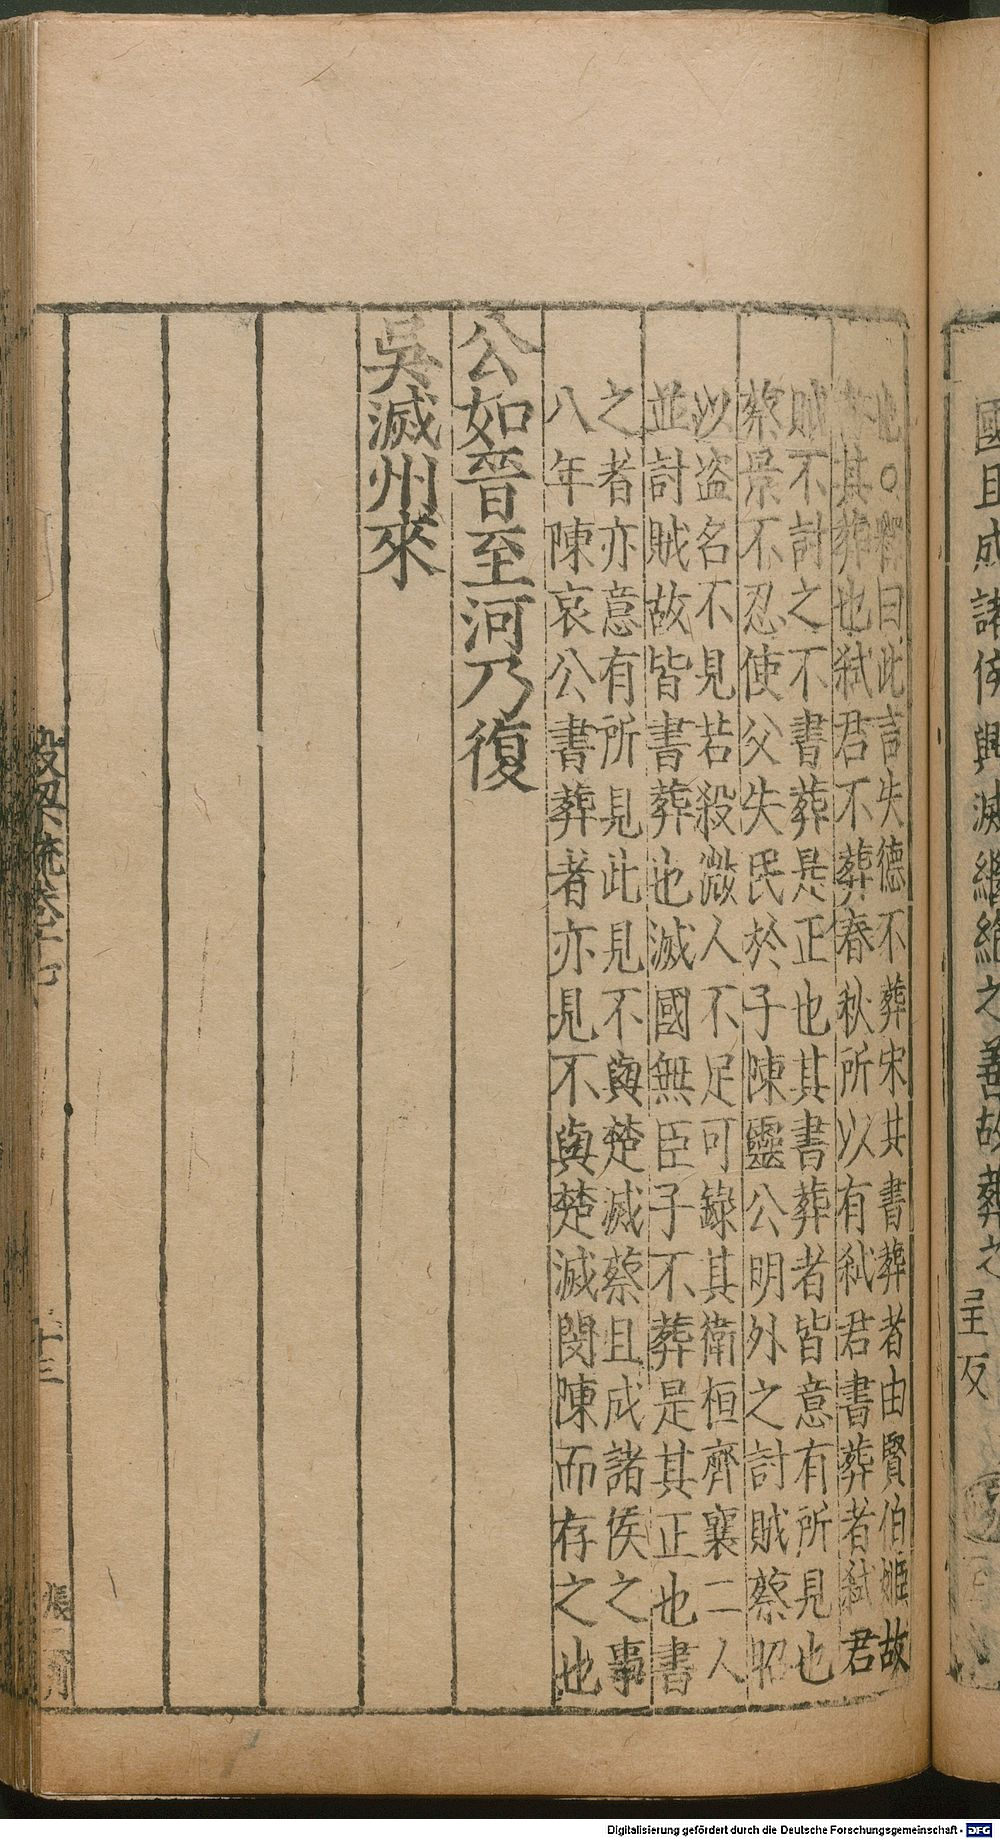 國且成諸侯興滅繼絕之善故葬之
呈反
也○釋曰此言失德不葬宋共書葬者由賢伯姬故
書其葬也弒君不葬春秋所以有弒君書葬者弒君
賊不討之不書葬是正也其書葬者皆意有所見也
蔡景不忍使父失民於子陳靈公明外之討賊蔡昭
以盜名不見若殺微人不足可錄其衛桓齊襄二人
並討賊故皆書葬也滅國無臣子不葬是其正也書
之者亦意有所見此見不與楚滅蔡且成諸侯之事
八年陳哀公書葬者亦見不與楚滅閔陳而存之也
公如晉至河乃復
吳滅州來
穀梁疏卷十七
十三
Digitalisierung gefördert durch die Deutsche Forschungsgemeinschaft - DFG